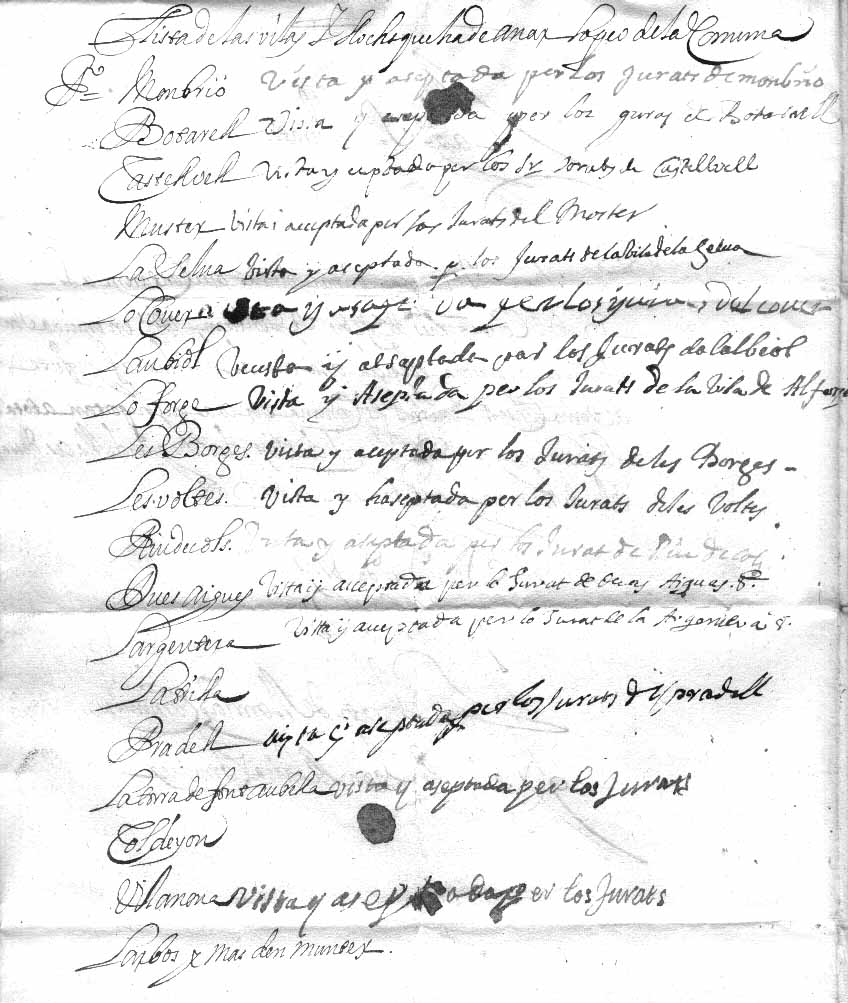 Llista de las vilas y llochs que ha de anar lo peo de la Comuna
Pº Monbrio vista y aseptada per los Jurats de monbrio
Botarell vista y aseptada per los guras de Botarell
Castellvell vista y aceptada per los Sr Jorats de Castellvell
Muster vista i acceptada per los Jurats del Moster
La Selva vista y aseptada p los Jurats de la vila de la Selva
Lo Cover vista y asage per los Jurats del cover
Laubiol veusta y atsaptada par los Jurats de lalbiol
Lo forge vista y Aseptada per los Jurats de la vila de Alforge
Les Borges. vista y aceptada per los Jurats de les Borges -
Les voltes. vista y haseptada per los Jurats de les Voltes.
Riudecols. vista y aseptada per lo Jurat de Riu de cols.
Dues aigues vista y acceptada per lo Jurat de duas Aiguas. &.
Largentera vista y acceptada per lo Jurat de la Argentera &.
Latrilla
Pradell vista y aseptada per los Jurats de pradell
La torra de fontaubella vista y aseptada per los Jurats
Coldeyou
Vilanova vista y aseptada per los Jurats
Larbos y Mas den Munter.